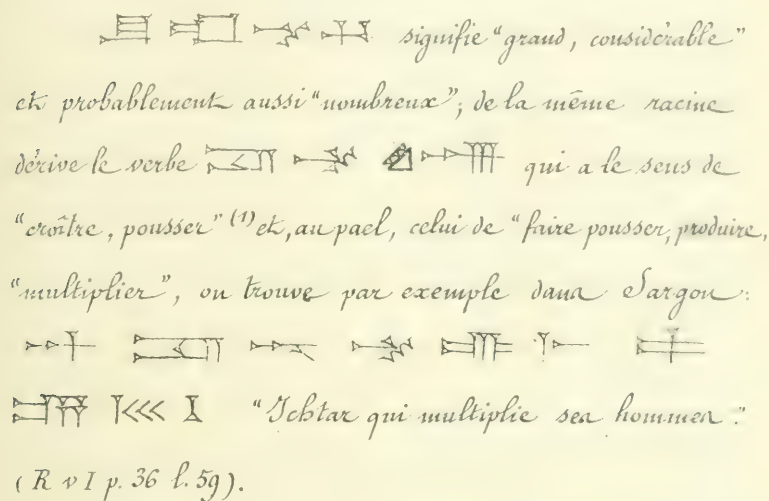 signifie "grand, considérable"
et probablement aussi "nombreux"; de la même racine
dérive le verbe qui a le sens de
"croître, pousser" (1) et, au pael, celui de "faire pousser, produire,
"multiplier", on trouve par exemple dans Sargon:
"Ichtar qui multiplie ses hommes."
(R v I p. 36 l. 59).